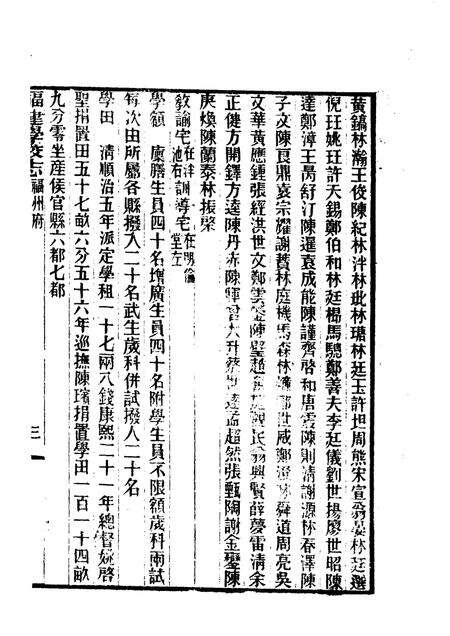 黃鎬林瀚王俊陳紀林泮林玭林璐林廷玉許坦周熊宋宣翁晏林廷選
倪珏姚玨許天錫鄭伯和林廷㭿馬驄鄭善夫李廷儀劉世揚廖世昭陳
達鄭漳王昺舒汀陳暹袁成能陳謹齊啓和唐雲陳則清謝源林春澤陳
子文陳良鼎袁宗耀謝蕡林庭機馬森林燫鄭世威鄭林舜道周亮吳
文華黃應鍾張經洪世文鄭雲鎣陳聖趙民翁興賢薛夢雷清余
正健方開鐸方逵陳丹赤陳曾大升蔡孟超然張甄陶謝金鑾陳
庚煥陳蘭泰林振棨
教諭宅在泮池右訓導宅在明倫堂左
學額　廩膳生員四十名增廣生員四十名附學生員不限額歲科兩試
每次由所屬各縣撥入二十名武生歲科併試撥入二十名
學田　清順治五年派定學租一十七兩八錢康熙二十一年總督姚啓
聖捐置田五十七畝六分五十六年巡撫陳璸捐置學田一百一十四畝
九分零坐產侯官縣六都七都
福建學校志福州府　三